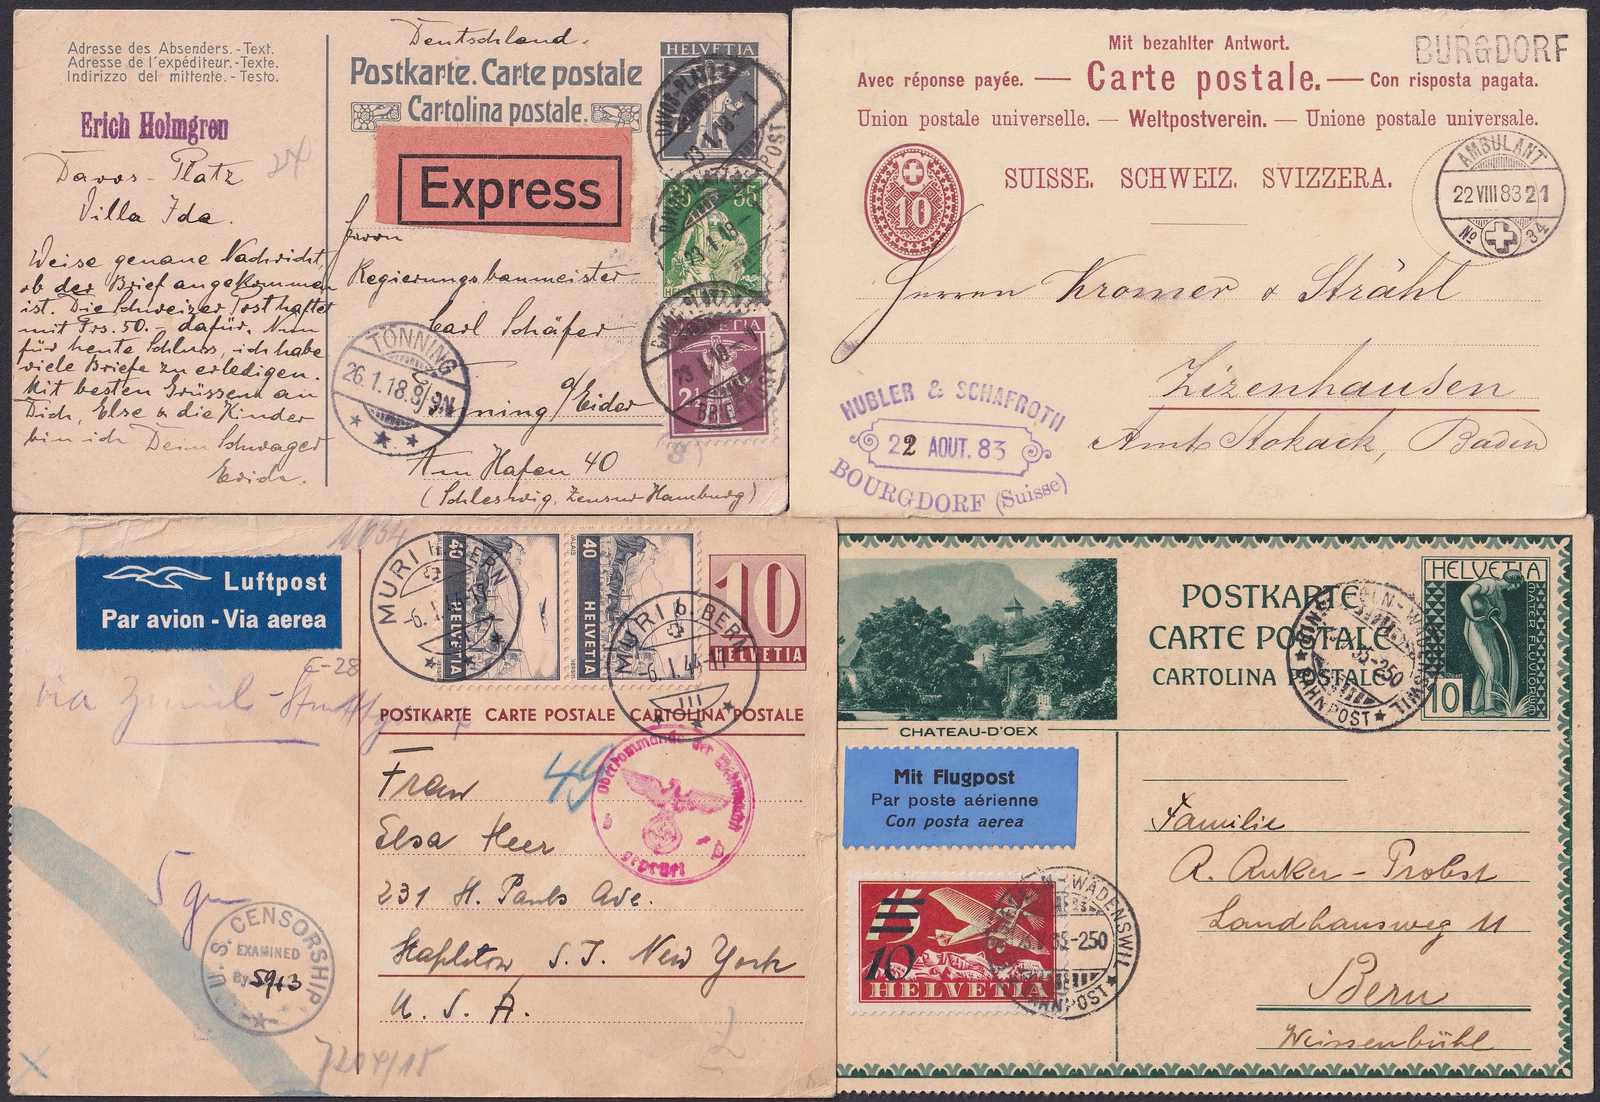 Adresse des Absenders.-Text.
Adresse de l'expéditeur.-Texte.
Indirizzo del mittente.-Testo.
Erich Holmgren
Davos-Platz
Villa Ida.
Weise genaue Nachricht,
ob der Brief angekommen
ist. Die Schweizer Post haftet
mit Frs. 50.- dafür. Nun
für heute Schluss, ich habe
viele Briefe zu erledigen.
Mit besten Grüssen an
Dich, Else & die Kinder
bin ich Dein Schwager
Erich.
Deutschland.
Postkarte. Carte postale
Cartolina postale.
HELVETIA
Express
35
HELVETIA
2½
23.1.18
BRIEFPOST
Herrn
Regierungsbaumeister
Carl Schäfer
Tönning a/Eider
Am Hafen 40
(Schleswig, Zensur Hamburg)
TÖNNING
26.1.18.8-9N
Mit bezahlter Antwort.
BURGDORF
Avec réponse payée. — Carte postale. — Con risposta pagata.
Union postale universelle. — Weltpostverein. — Unione postale universale.
SUISSE. SCHWEIZ. SVIZZERA.
10
AMBULANT
22 VIII 83 21
No 34
Herren Kromer & Strähl
Zizenhausen
Amt Stokack, Baden
HUBLER & SCHAFROTH
22 AOUT. 83
BOURGDORF (Suisse)
Luftpost
Par avion - Via aerea
1064
C-28
MURI b. BERN
-6.1.44
40 HELVETIA
40 HELVETIA
MURI b. BERN
-6.1.44-17
III
10
HELVETIA
POSTKARTE CARTE POSTALE CARTOLINA POSTALE
Frau
Elsa Heer
231 St. Pauls Ave.
Stapleton S.I. New York
U.S.A.
49
Oberkommando der Wehrmacht
geprüft
b
5 gr
U.S. CENSORSHIP
EXAMINED
By 5913
7204/15
CHATEAU-D'OEX
POSTKARTE
CARTE POSTALE
CARTOLINA POSTALE
HELVETIA
MATER FLUVIORUM
10
BAHNPOST
35-250
Mit Flugpost
Par poste aérienne
Con posta aerea
15
10
HELVETIA
WÄDENSWIL
35-250
BAHNPOST
Familie
A. Anker-Probst
Landhausweg 11
Bern
Weissenbühl